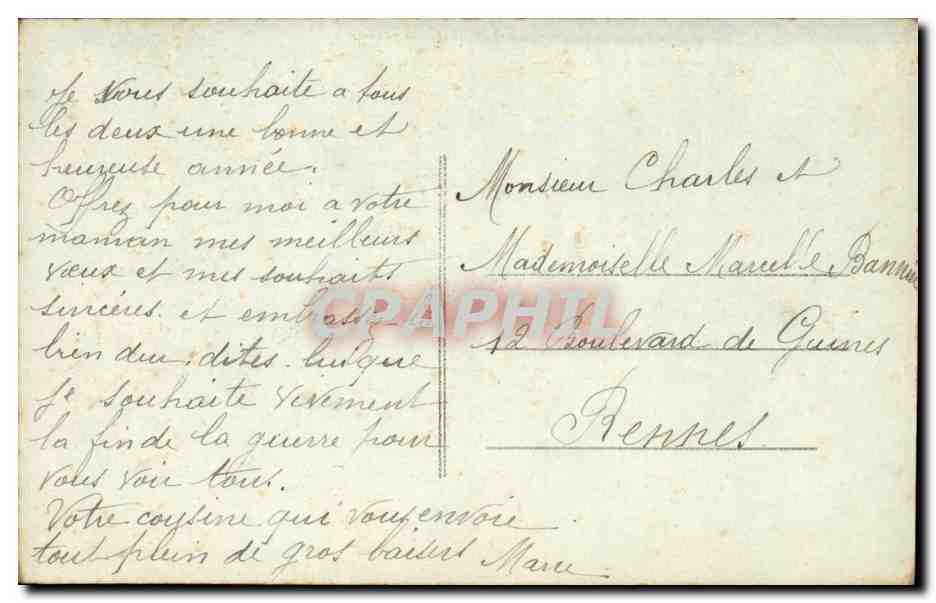 Je vous souhaite a tous
les deux une bonne et
heureuse année.
Offrez pour moi a votre
maman mes meilleurs
vœux et mes souhaits
sincères. et embrassez la
bien dites. lui que
je souhaite vivement
la fin de la guerre pour
vous voir tous.
Votre cousine qui vous envoie
tout plein de gros baisers Marie
Monsieur Charles et
Mademoiselle Marcelle
12 Boulevard de Guines
Rennes
CPAPHIL